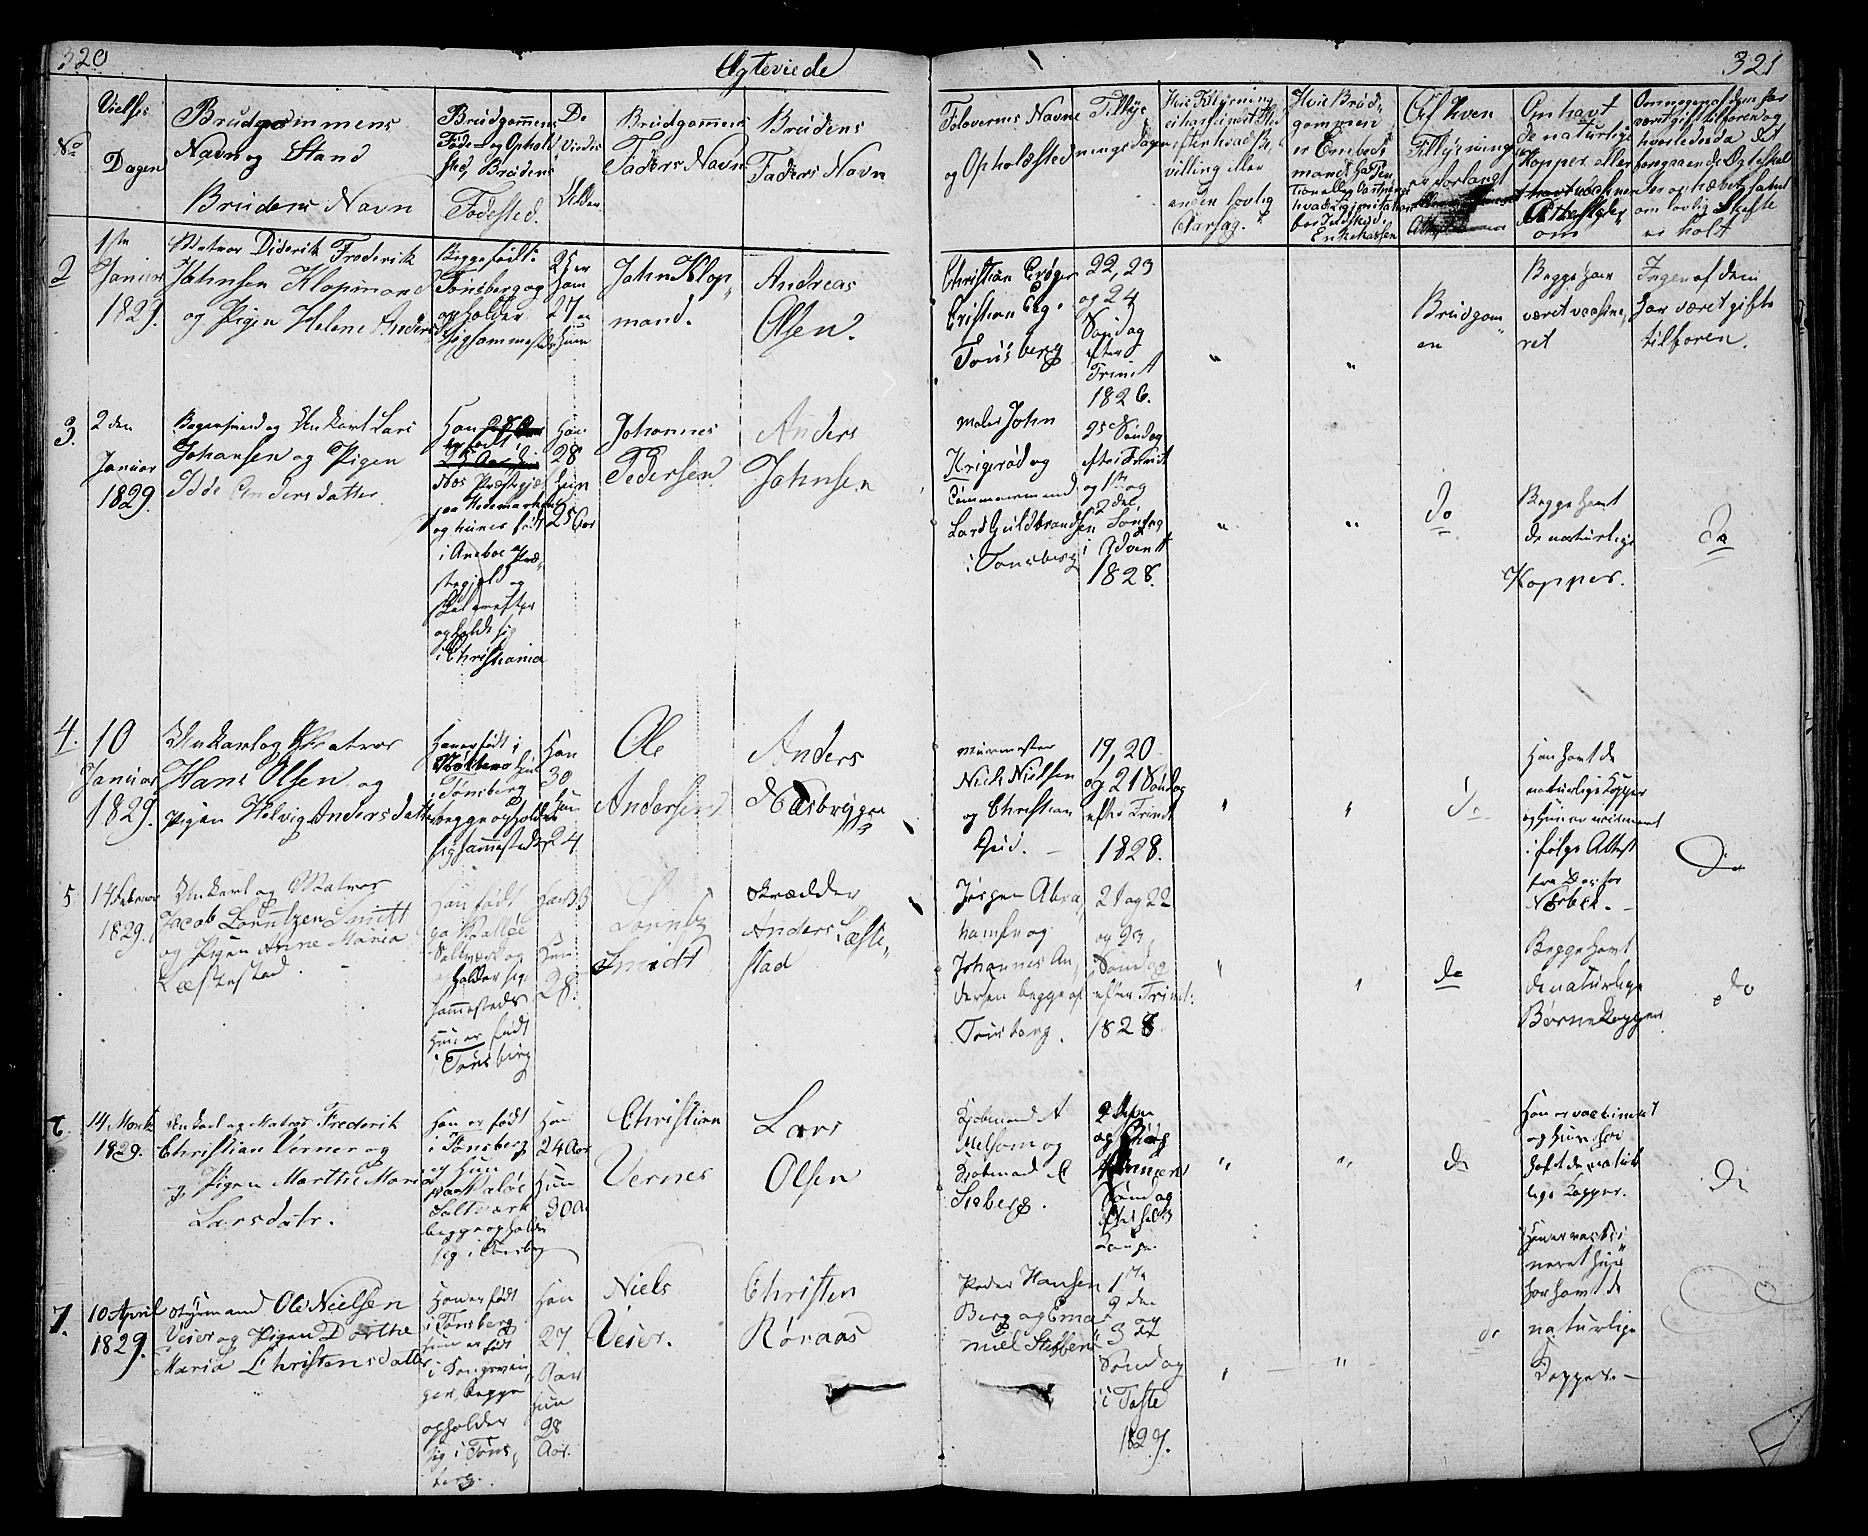 320
Ægteviede
321
No
Vielses
Dagen
Brudgommens
Navn og Stand
Brudens Navn
Brudgommens
Føde og Ophold
sted, Brudens
Fødested.
De
Viedes
Alder
Brudgommens
Faders Navn
Brudens
Faders Navn
Folovernes Navne
og Opholdsted
Tillys
ningsdage
Hvis Tillysning
ei har skeet
efter hvad Be
villing eller
anden lovlig
Aarsag.
Hvis Brud
gommen
er Embeds
mand
Enkekassen
Af hven
Tillysning
er forlangt
Om havt
de naturlige
Kopper eller
Attester
om
været gift tilforen og
om lovlig Skifte
er holt
2
1ste
Januar
1829.
Matros Diderik Frederik
Johnsen Klopmand
og Pigen Helene Anders
Begge født i
Tønsberg og
opholder
sig sammesteds
25 er
ham
27 er
Huun
John Klop
mand.
Andreas
Olsen.
Christian Crøger
Cristian Eeg
Tønsberg
22, 23
og 24
Søndag
efter
Trinit
1826.
"
"
Brudgom
en
Begge har
været vacsine
ret
Ingen af dem
har været gifte
tilforen.
3.
2 den
Januar
1829.
Bagersvend og Unkarl Lars
Johansen og Pigen
Idde Andersdatter
Han
er født
Næs Præstegjæ
paa Hedemarken
og hun er født
i Aneboe Præ
stegjeld og
opholde sig
i Christiania
Han
28
Hun
25 Aar
Johannes
Pedersen
Anders
Johnsen
Maler John
Krigsrød og
Tømmermand
Lars Guldbrandsen
i Tønsberg
25 Søndag
efter Trinit
og 1ste og
2 den
Søndag
i Advent
1828.
"
"
Do
Begge havt
de naturlige
Kopper.
Do
4.
10
Januar
1829.
Unkarl og Matros
Hans Olsen og
Pigen Helvig Andersdatter
Han er født i
Nøtterø Hun
i Tønsberg
begge opholder
sig sammesteds
Han
30
Hun
24
Ole
Andersen
Anders
Næsbrygge
Murmester
Niels Nielsen
og Christian
Gud.
19, 20
og 21 Søndag
efter Trinit
1828.
"
"
Do
Han havt de
naturlige Kopper
og Hun er vacineret
i følge Attest
fra Doctor
Do
5
14 Februar
1829.
Unkarl og Matros
Jacob Lorentzen Smitt
og Pigen Anne Maria
Læstestad.
Han født
paa Valløe
Saltværk og
opholder sig
sammesteds
Hun er født
i Tønsberg
Han 33
Hun
28.
Lorentz
Smidt
Skrædder
Anders Læste
stad
Jørgen Abra
hamsen og
Johannes An
dersen begge af
Tønsberg.
21 og 22
og 23
Søndag
efter Trinit:
1828
"
"
do
Begge havt
de naturlige
Børnekopper
do
6
14 Marts
1829.
Unkarl og Matros Frederik
Christian Verner og
og Pigen Marthe Maria
Larsdatr.
Han er født
i Tønsberg
og Hun
paa Valøe
Saltværk
begge opholder
sig i Tønsberg
Han
24 Aar
Hun
30 Aar
Christian
Vernes
Lars
Olsen
Kjøbmand A
Melsom og
Kjøbmad C
Søeberg.
Søndag
"
"
do
Han er vaccineret
og Hun har
haft de naturl
lige Kopper.
Do
7.
10 April
1829.
Styrmand Ole Nielsen
Veier og Pigen Dorthe
Maria Christensdatter
Han er født
i Tønsberg
Hun er født
i Kongsvin
ger, begge
opholder
sig i Tøns
berg.
Han
27
Aar
Hun
28
Aar.
Niels
Veier.
Christen
Røraas
Peder Hansen
Berg og Ema
nuel Steffens
1ste
2 den
og
3 die
Søndag
i Faste
1829.
"
"
do
Han er vacsi
neret Hun
har havt de
naturlige
Kopper.